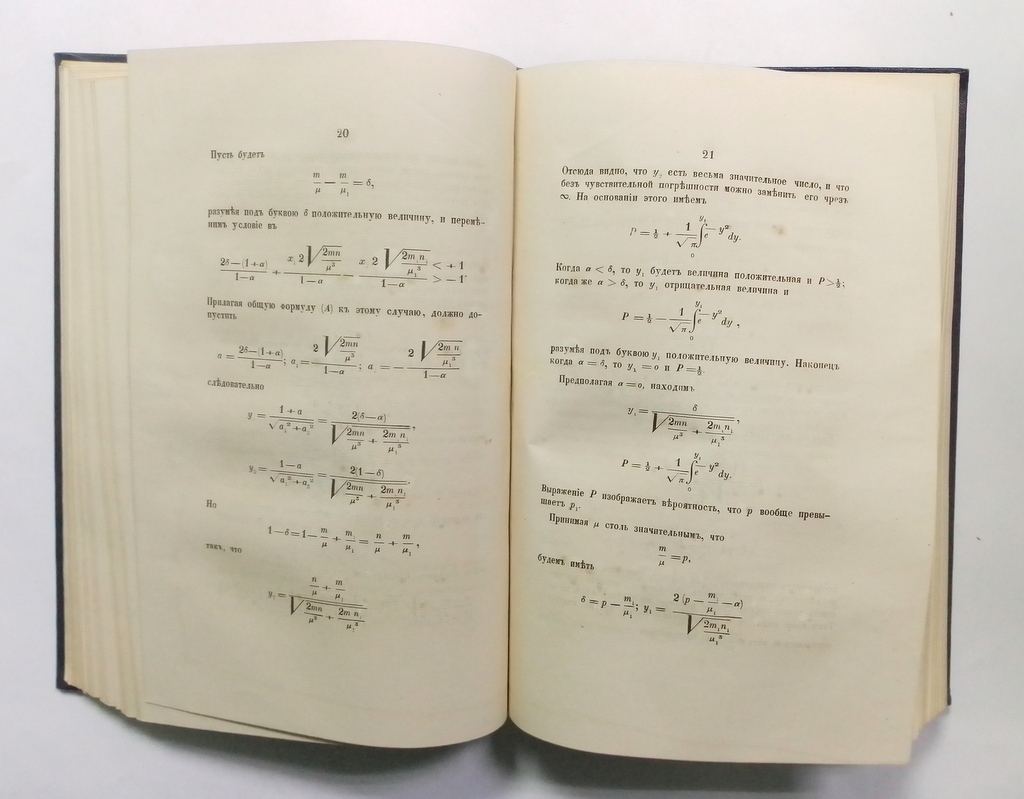 20
Пусть будетъ
m/μ — m/μ₁ = δ,
разумѣя подъ буквою δ положительную величину, и перемѣ-
нимъ условіе въ
2δ—(1+a)/1—a + x₁ 2 √(2mn/μ³)/1—a — x 2 √(2m₁n₁/μ₁³)/1—a < + 1 > — 1
Прилагая общую формулу (A) къ этому случаю, должно до-
пустить
a = 2δ—(1+a)/1—a; a₁ = 2 √(2mn/μ³)/1—a; a = — 2 √(2m n/μ₁³)/1—a
слѣдовательно
y = 1+a/√(a₁²+a₂²) = 2(δ—a)/√(2mn/μ³ + 2m₁n₁/μ₁³),
y₂ = 1—a/√(a₁²+a₂²) = 2(1—δ)/√(2mn/μ³ + 2m₁n₁/μ₁³).
Но
1—δ = 1— m/μ + m/μ₁ = n/μ + m/μ₁,
такъ, что
y₂ = (n/μ + m/μ₁)/√(2mn/μ³ + 2m₁n₁/μ₁³)
21
Отсюда видно, что y₂ есть весьма значительное число, и что
безъ чувствительной погрѣшности можно замѣнить его чрезъ
∞. На основаніи этого имѣемъ
P = ½ + 1/√π ∫₀^y₁ e^—y² dy.
Когда a < δ, то y₁ будетъ величина положительная и P>½;
когда же a > δ, то y₁ отрицательная величина и
P = ½ — 1/√π ∫₀^y₁ e^—y² dy,
разумѣя подъ буквою y₁ положительную величину. Наконецъ
когда a = δ, то y₁ =o и P=½.
Предполагая a=o, находимъ
y₁ = δ/√(2mn/μ³ + 2m₁n₁/μ₁³),
P = ½ + 1/√π ∫₀^y₁ e^—y² dy.
Выраженіе P изображаетъ вѣроятность, что p вообще превы-
шаетъ p₁.
Принимая μ столь значительнымъ, что
m/μ = p,
будемъ имѣть
δ = p — m₁/μ₁; y₁ = 2 (p — m₁/μ₁ —a)/√(2m₁n₁/μ₁³)